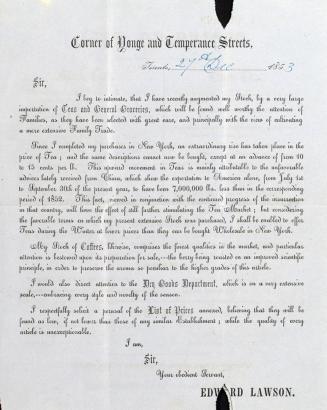 Corner of Yonge and Temperance Streets.
Toronto, 27th Dec 1853
Sir,
I beg to intimate, that I have recently augmented my Stock, by a very large
importation of Teas and General Groceries, which will be found well worthy the attention of
Families, as they have been selected with great care, and principally with the view of cultivating
a more extensive Family Trade.
Since I completed my purchases in New York, an extraordinary rise has taken place in the
price of Tea; and the same descriptions cannot now be bought, except at an advance of from 10
to 15 cents per lb. This upward movement in Teas is mainly attributable to the unfavorable
advices lately received from China, which shew the exportation to America alone, from July 1st
to September 30th of the present year, to have been 7,000,000 lbs. less than in the corresponding
period of 1852. This fact, viewed in conjunction with the continued progress of the insurrection
in that country, will have the effect of still further stimulating the Tea Market; but considering
the favorable terms on which my present extensive Stock was purchased, I shall be enabled to offer
Teas during the Winter at lower prices than they can be bought Wholesale in New York.
My Stock of Coffees, likewise, comprises the finest qualities in the market, and particular
attention is bestowed upon its preparation for sale,—the berry being roasted on an improved scientific
principle, in order to preserve the aroma so peculiar to the higher grades of this article.
I would also direct attention to the Dry Goods Department, which is on a very extensive
scale,—embracing every style and novelty of the season.
I respectfully solicit a perusal of the List of Prices annexed, believing that they will be
found as low, if not lower than those of any similar Establishment; while the quality of every
article is unexceptionable.
I am,
Sir,
Your obedient Servant,
EDWARD LAWSON.